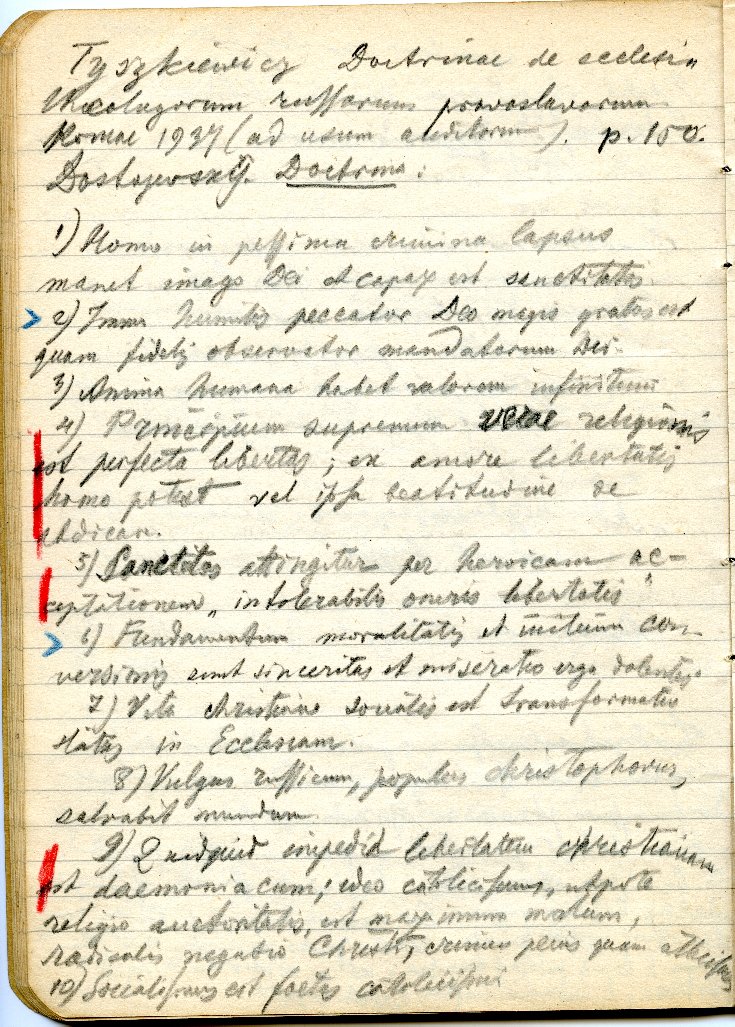 Tyszkiewicz Doctrinae de ecclesia
theologorum russorum pravoslavorum
Romae 1937 (ad usum auditorum). p. 150.
Dostojevskij. Doctrina:
1) Homo in pessima crimina lapsus
manet imago Dei et capax est sanctitatis.
2) Immo humilis peccator Deo magis gratus est
quam fidelis observator mandatorum Dei.
3) Anima humana habet valorem infinitum
4) Principium supremum verae religionis
est perfecta libertas; ex amore libertatis
homo potest vel ipsa beatitudine se
abdicare.
5) Sanctitas attingitur per heroicam ac-
ceptationem „intolerabilis oneris libertatis"
6) Fundamentum moralitatis et initium con-
versionis sunt sinceritas et miseratio erga dolentes.
7) Vita christiana socialis est transformatio
status in Ecclesiam.
8) Vulgus russicum, populus christophorus,
salvabit mundum
9) Quidquid impedit libertatem christianam
est daemoniacum; ideo catolicismus, utpote
religio auctoritatis, est maximum malum,
radicalis negatio Christi, crimen peius quam atheismus
10) Socialismus est foetus catolicismi